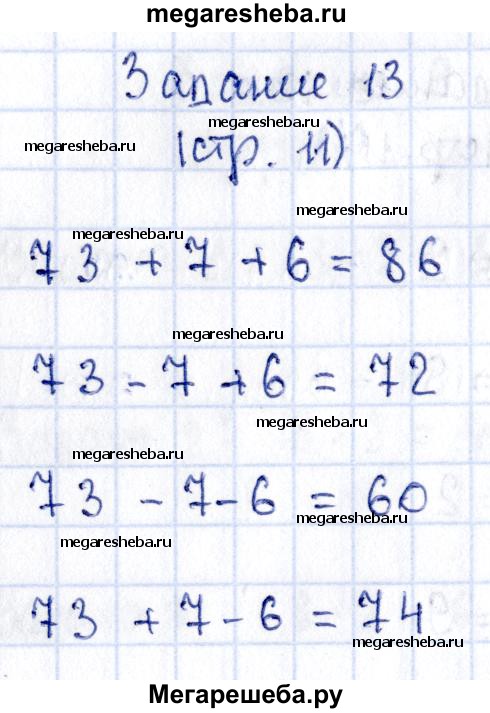 megaresheba.ru
Задание 13
megaresheba.ru
megaresheba.ru
(стр. 11)
megaresheba.ru
megaresheba.ru
73 + 7 + 6 = 86
megaresheba.ru
73 - 7 + 6 = 72
megaresheba.ru
megaresheba.ru
73 - 7 - 6 = 60
megaresheba.ru
megaresheba.ru
73 + 7 - 6 = 74
megaresheba.ru
Мегарешеба.ру